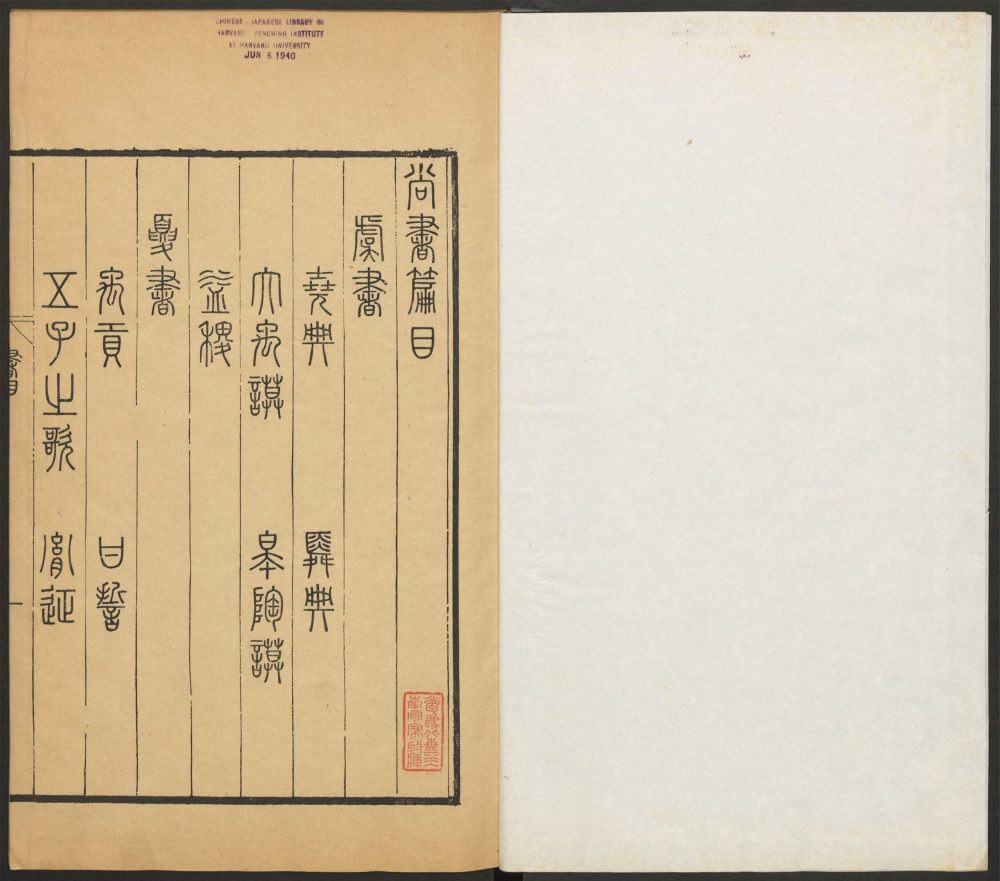 CHINESE - JAPANESE LIBRARY OF
HARVARD - YENCHING INSTITUTE
AT HARVARD UNIVERSITY
JUN 6 1940
尚書篇目
虞書
堯典 舜典
大禹謨 皋陶謨
益稷
夏書
禹貢 甘誓
五子之歌 胤征
一